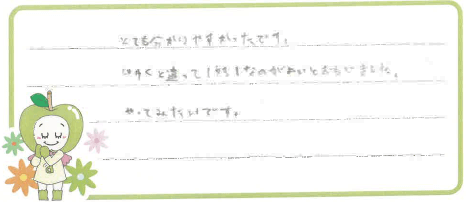 とても分かりやすかったです。
と違って1対1なのがいいとおもいました。
やってみたいです。